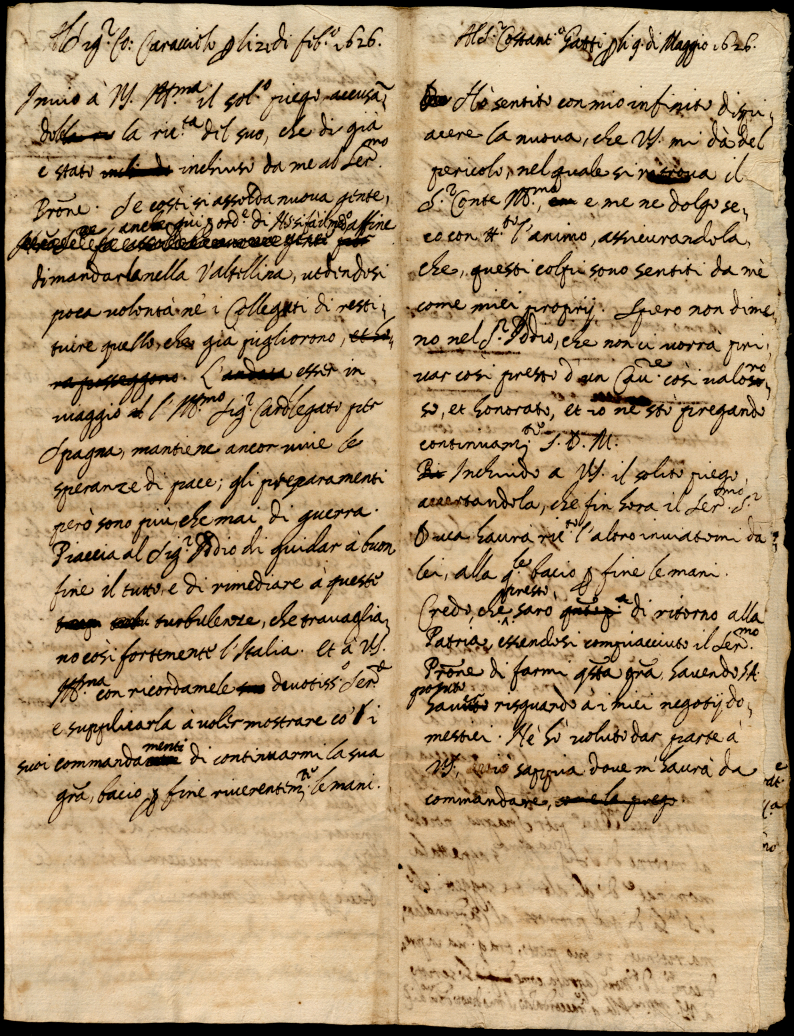 Al Sig.r Co: Caracciolo p li 21 di feb.o 1626.
Invio à VS. Ill.ma il sol.o piego accusā,
dola la ric.ta del suo, che di già
è stato inchiuso da me al Ser.mo
Prōne. Se così si assolda nuova gente,
anche qui p ord.e di affine
di mandarla nella Valtellina, vedendosi
poca volontà nè i Collegati di resti,
tuire quello, che già pigliorono, et ho,
ra posseggono. L'andata esser in
viaggio al l'Ill.mo Sig.r Card. Legato per
Spagna, mantiene ancor vive le
speranze di pace; gli preparamenti
però sono più che mai di guerra.
Piaccia al Sig.r Iddio di guidar à buon
fine il tutto, e di rimediare à queste
turbulenze, che travaglia,
no così fortemente l'Italia. Et à VS.
Ill.ma con ricordarmele devotiss.o Ser.e
e supplicarla à voler mostrare co' i
suoi commandamenti di continuarmi la sua
grā, bacio p fine riverentem.te le mani.
Al S.r Costant.o Gatti p li 9 di Maggio 1626.
Hò sentito con mio infinito dispi,
acere la nuova, che VS. mi dà del
pericolo, nel quale si ritrova il
S.r Conte Ill.mo, e me ne dolgo se,
co con tt.o l'animo, assicurandola,
che, questi colpi sono sentiti da mè
come miei proprij. Spero non dime,
no nel S.r Iddio, che non ci vorrà pri,
var così presto d'un Cau.re così valoro,
so, et honorato, et io ne stò pregando
continuam.te S. D. M.
Inchiudo a VS. il solito piego,
accertandola, che fin hora il Ser.mo S.r
Duca haurà ric.to l'altro inviatomi da
lei, alla q.le bacio p fine le mani.
Credo, che presto sarò di ritorno alla
Patria, essendosi compiacciuto il Ser.mo
Prōne di farmi q̄sta grā, havendo S.A.
havuto risguardo à i miei negotij do,
mestici. Nè hò voluto dar parte à
VS., acciò sappia dove m'haurà da
commandare, e la prego